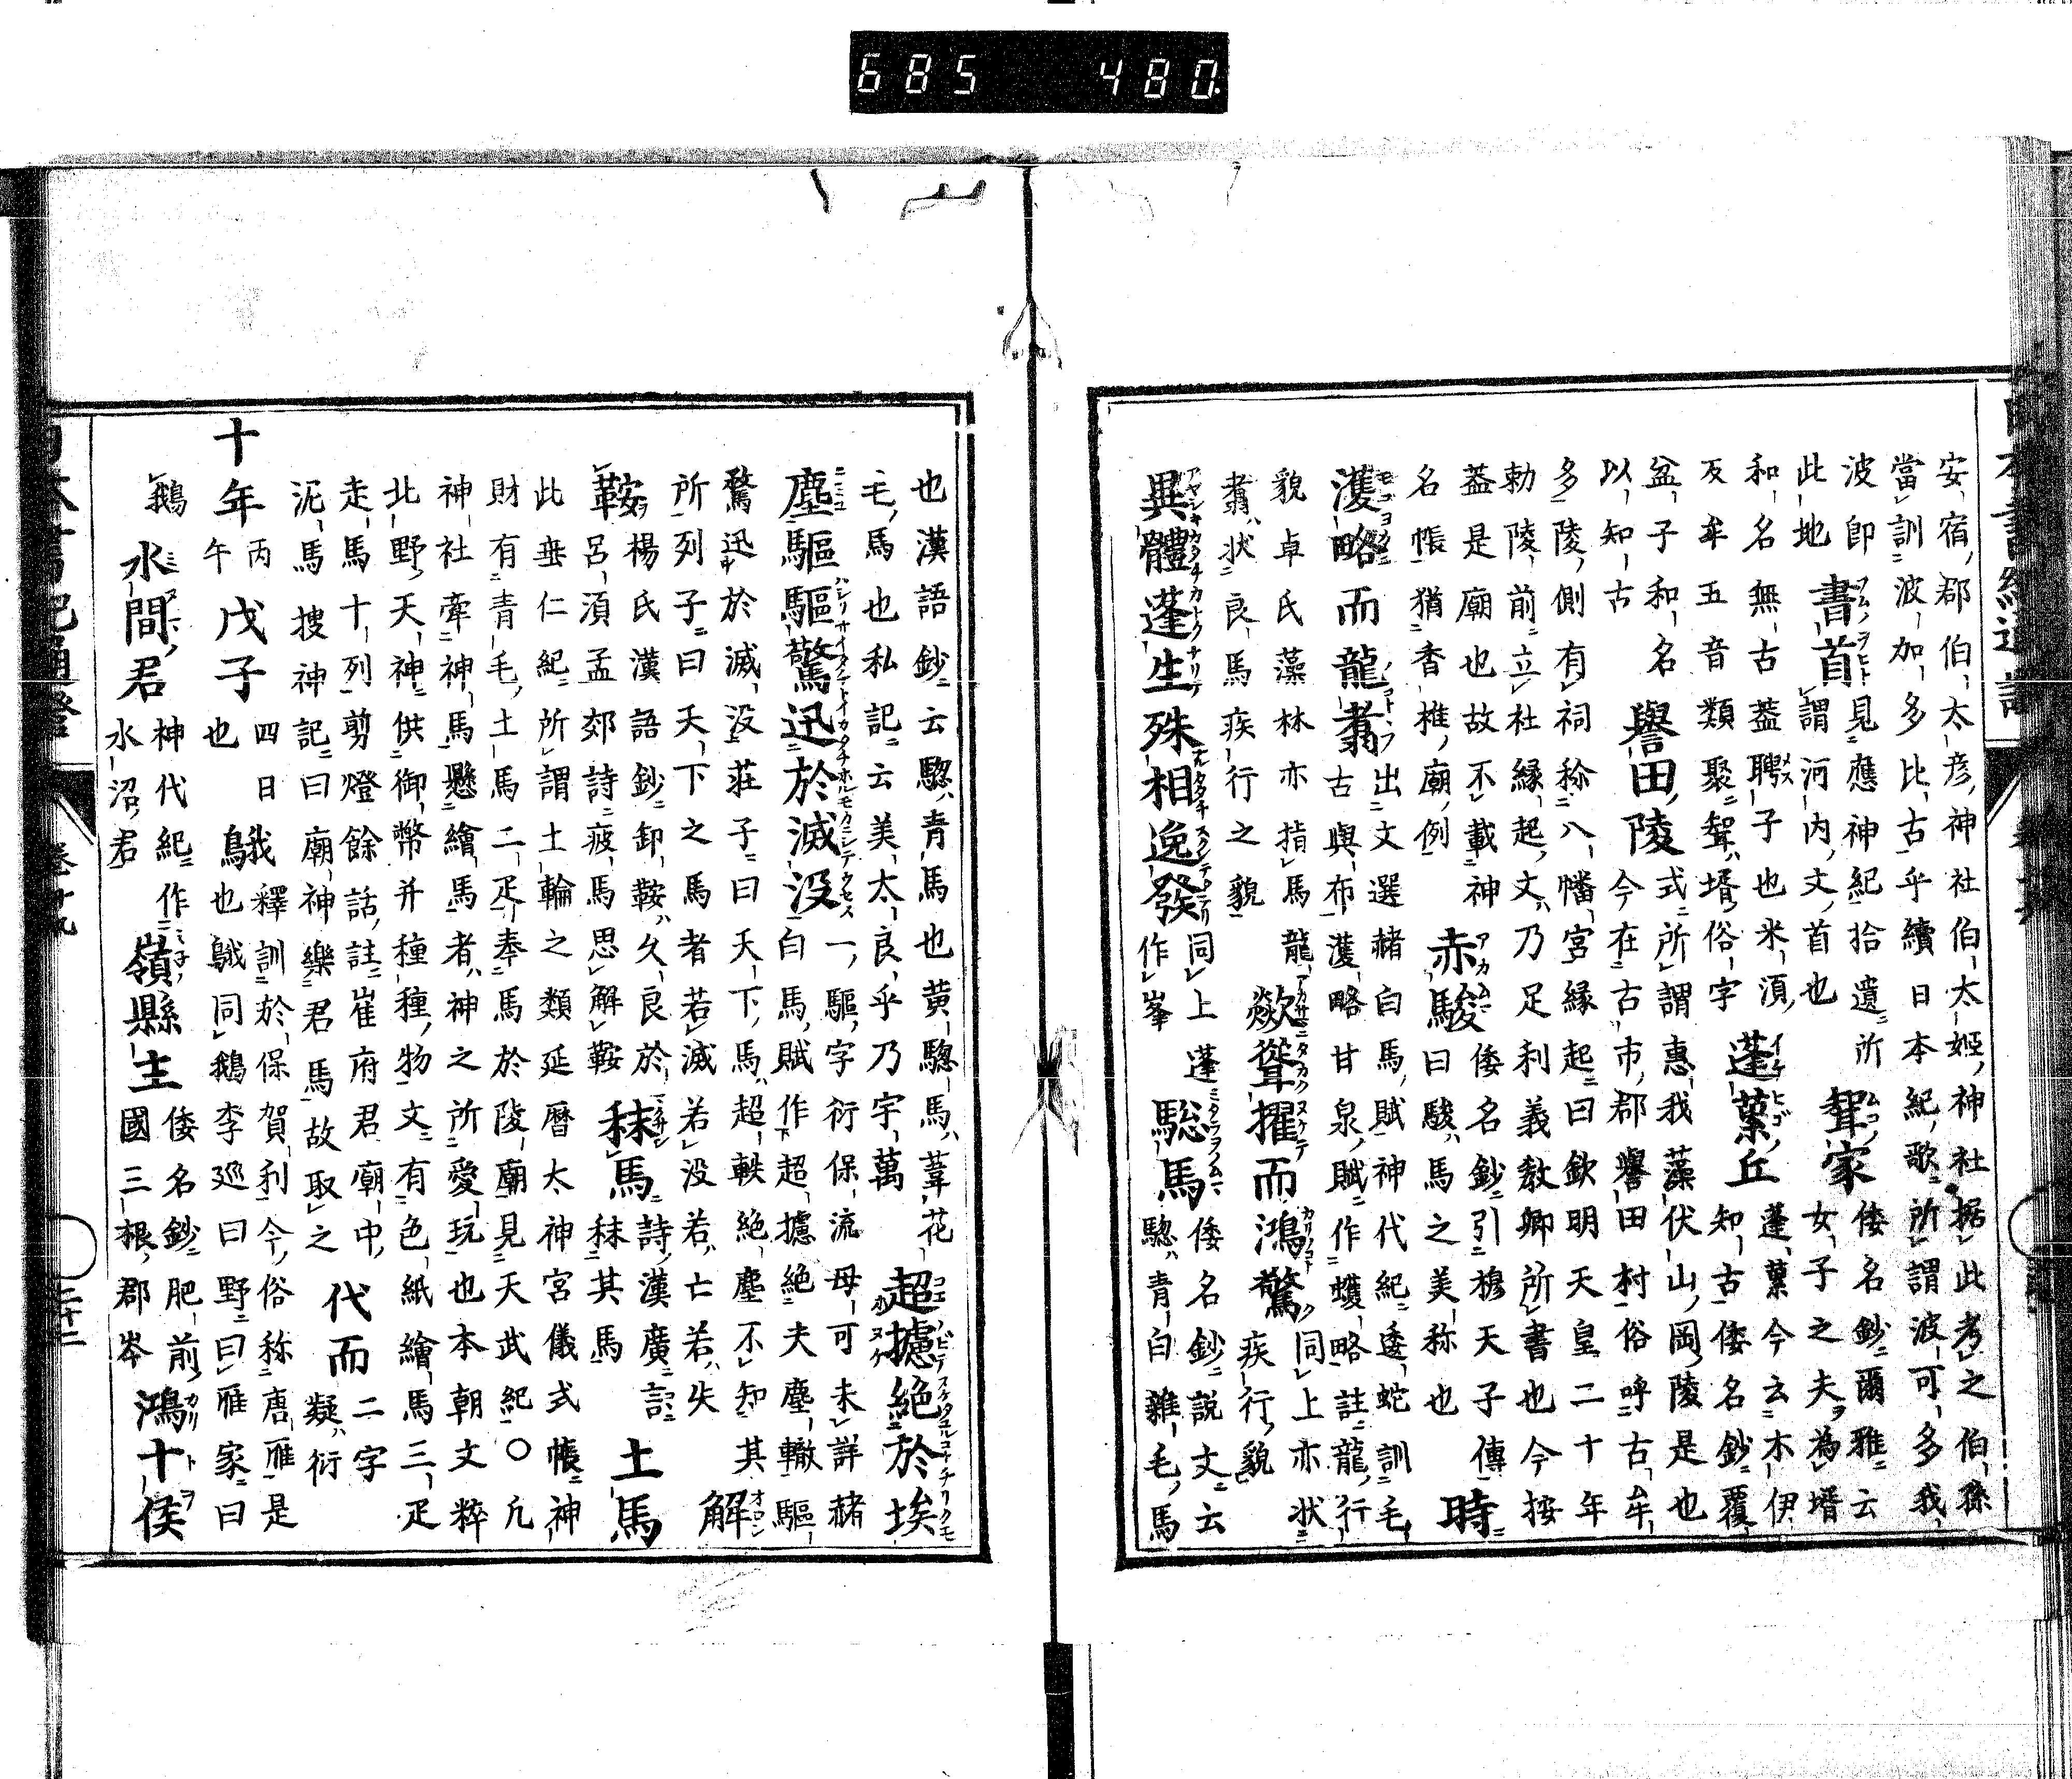 685 480
安宿郡伯太彦神社伯太姫神社据此考之伯孫
當訓波加多比古乎續日本紀歌所謂波可多我
波即 見應神紀拾遺所 倭名鈔爾雅云
此地 書首 謂河内文首也 聟家 女子之夫為壻
和名無古蓋聘子也米湏 蓬蔂今玄木伊
反牟五音類聚聟壻俗字 蓬蔂丘 知古倭名鈔覆
盆子和名 式所謂惠我藻伏山岡陵是也
以知古 譽田陵 今在古市郡譽田村俗呼古牟
多陵側有祠称八幡宮緣起曰欽明天皇二十年
勅陵前立社緣起文乃足利義教卿所書也今按
蓋是廟也故不載神 倭名鈔引穆天子傳
名帳猶香椎廟例 赤駿 曰駿馬之美称也 時
濩略而龍翥 出文選赭白馬賦神代紀逶蛇訓毛
古與布濩略甘泉賦作蠖略註龍行
貌卓氏藻林亦指馬龍 同上亦状
翥状良馬疾行之貌 歘聳擢而鴻驚 疾行貌
異體蓬生殊相逸發 同上蓬 倭名鈔説文云
作峯 驄馬 驄青白雜毛馬
也漢語鈔云驄青馬也黄驄馬葦花
毛馬也私記云美太良乎乃宇萬 超攄絶於埃
塵驅驅驚迅於滅没 一驅字衍保流母可未詳赭
白馬賦作超攄絶夫塵轍驅
驁迅於滅没莊子曰天下馬超軼絶塵不知其
所列子曰天下之馬者若滅若没若亡若失 解
鞍 楊氏漢語鈔卸鞍久良於 秣馬 詩漢廣言
呂湏孟郊詩疲馬思解鞍 秣其馬 土馬
此垂仁紀所謂土輪之類延暦太神宮儀式帳神
財有青毛土馬二疋奉馬於陵廟見天武紀〇凡
神社牽神馬懸繪馬者神之所愛玩也本朝文粹
北野天神供御幣并種種物文有色紙繪馬三疋
走馬十列剪燈餘話註崔府君廟中 二字
泥馬搜神記曰廟神樂君馬故取之 代而 疑衍
十年 丙午 戊子 四日也 鵝 釋訓於保賀利今俗称唐雁是
鳥也鵞同鵝李巡曰野曰雁家曰
鵝 水間君 神代紀作水沼君 嶺縣主 倭名鈔肥前
國三根郡岑 鴻十侯
日本書紀通證 卷十九 二十二